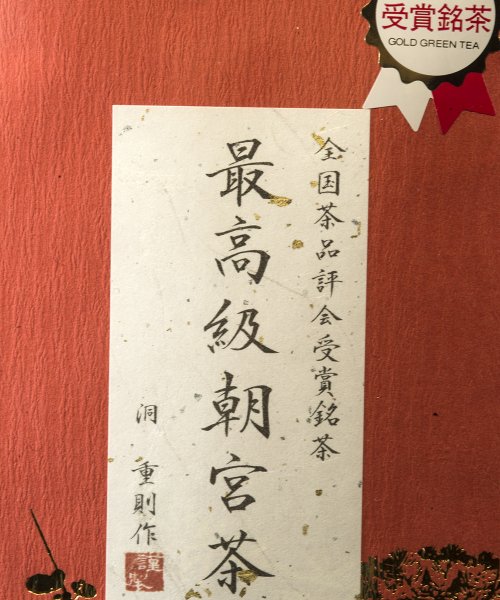 受賞銘茶
GOLD GREEN TEA
全国茶品評会受賞銘茶
最高級朝宮茶
洞 重則作
謹製